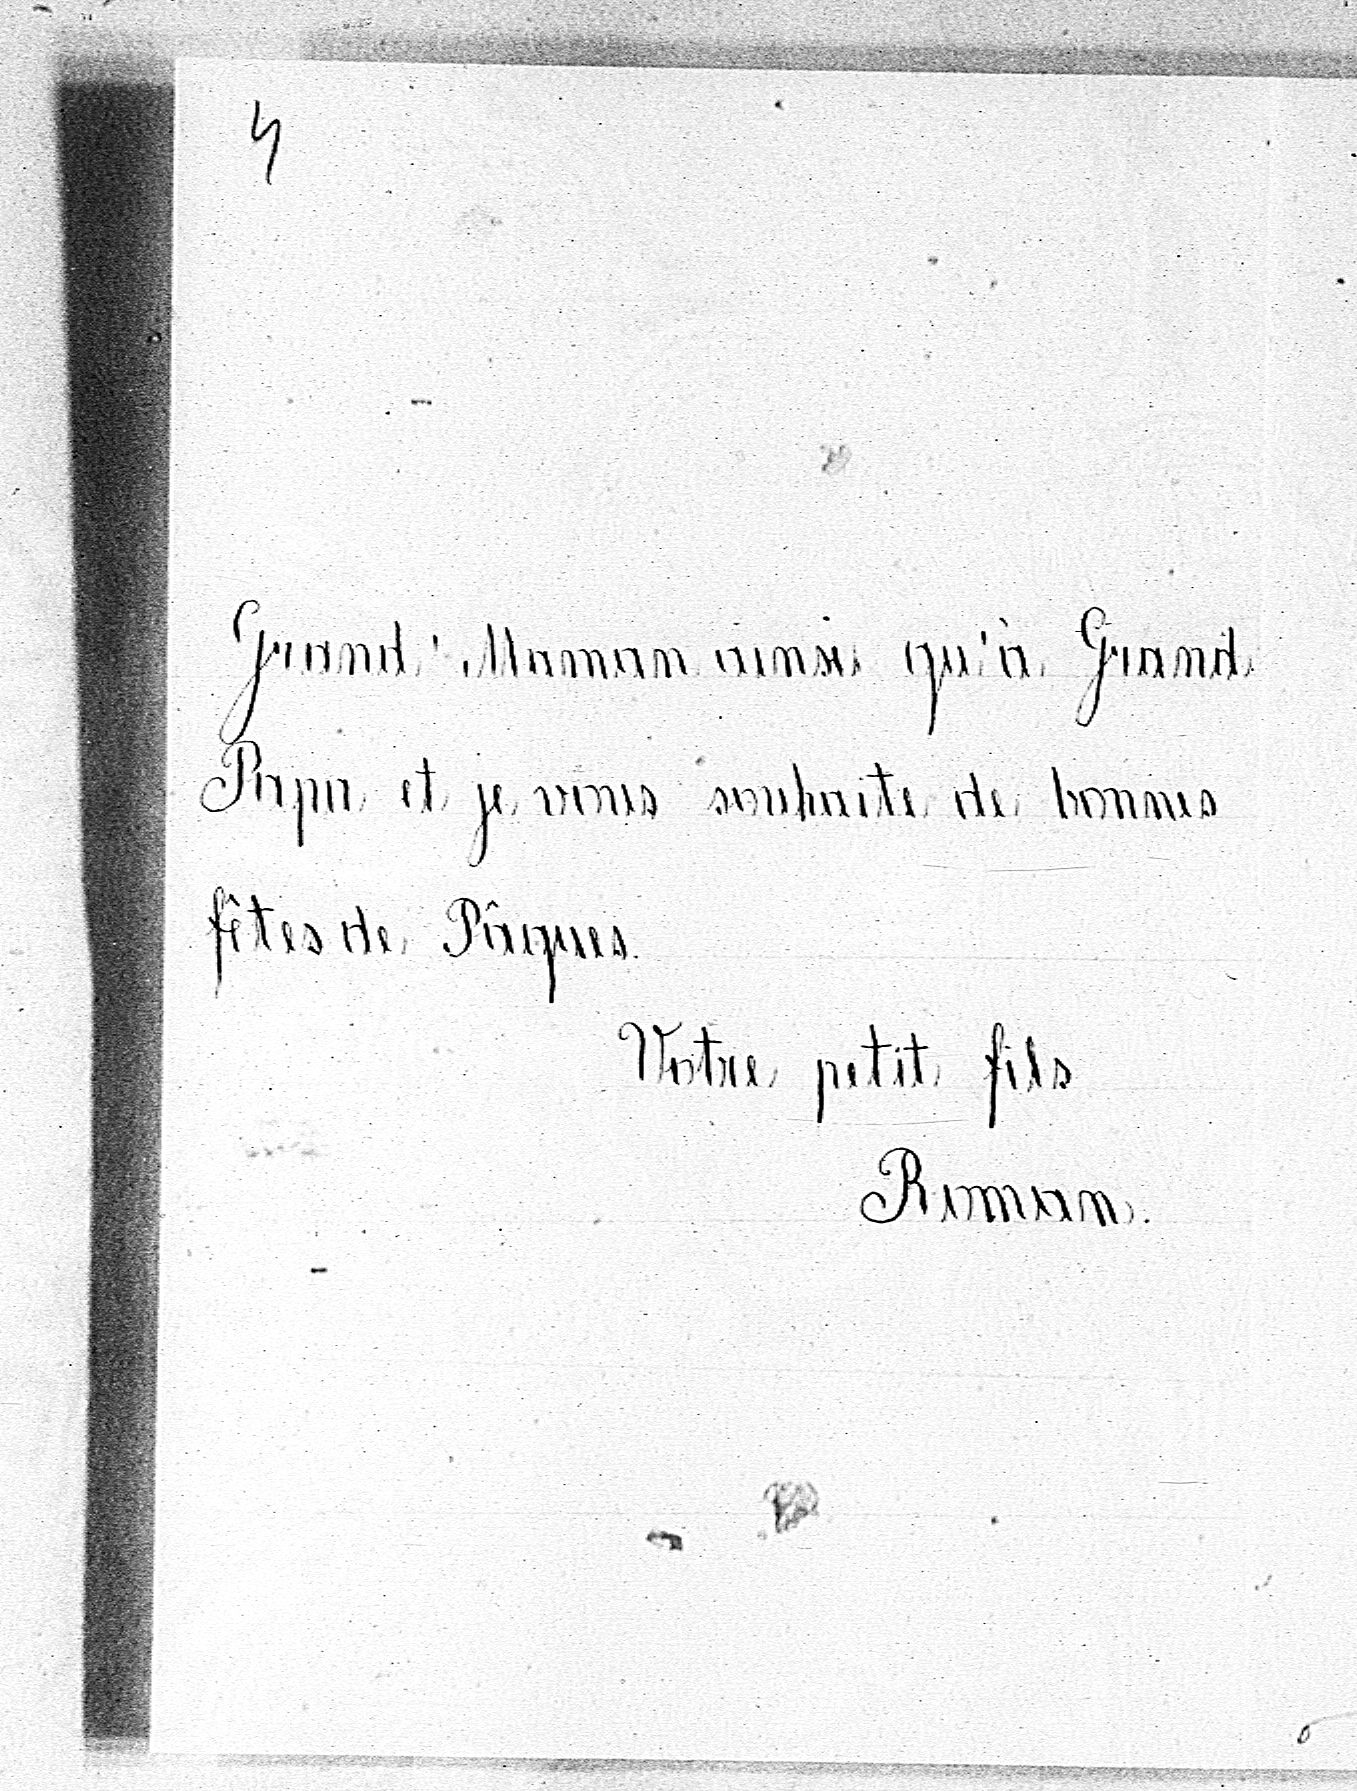 4
Grand'Maman ainsi qu'à Grand
Papa et je vous souhaite de bonnes
fêtes de Pâques.
Votre petit fils
Roman.